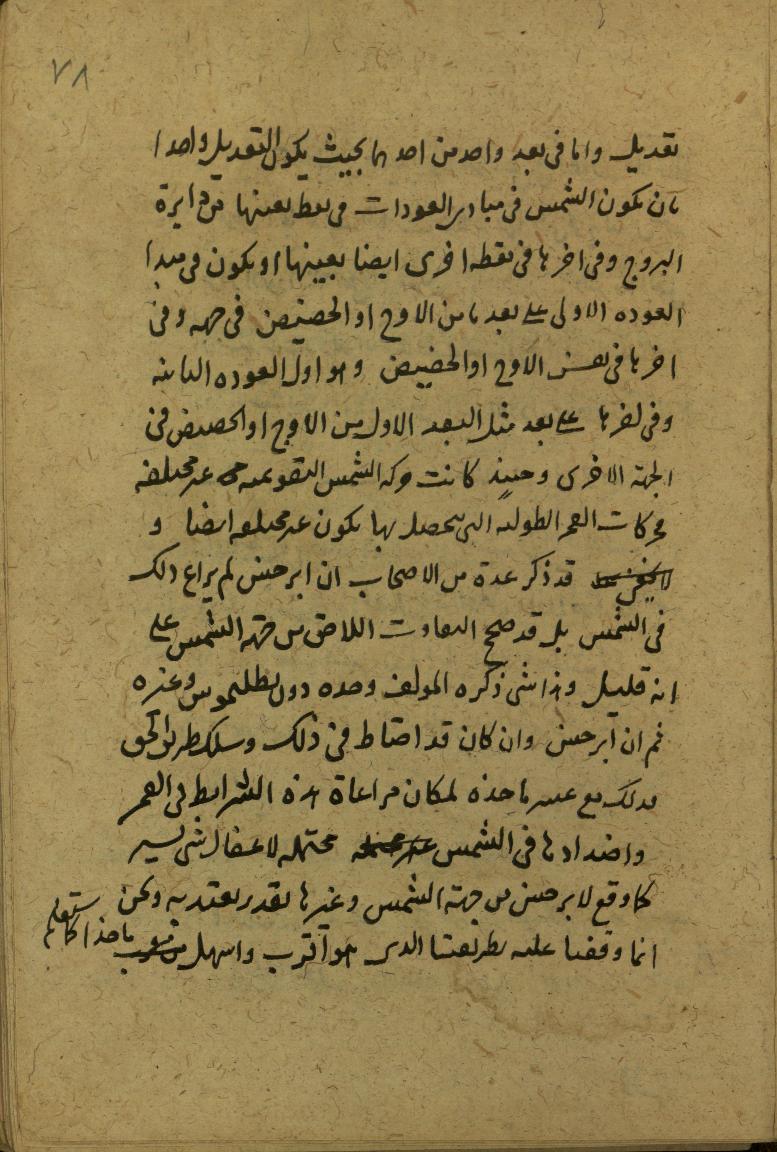 ٧٨
تعديل واما فى بعد واحد من احدهما بحيث يكون التعديل واحدا
بان تكون الشمس فى مبادى العودات فى نقطه بعينها من دايرة
البروج وفى اخرها فى نقطه اخرى ايضا بعينها او تكون فى مبدا
العوده الاولى على بعد ما من الاوج او الحضيض فى جهه وفى
اخرها فى نفس الاوج او الحضيض وهو اول العوده الثانيه
وفى اخرها على بعد مثل البعد الاول من الاوج او الحضيض فى
الجهة الاخرى وحينئذ كانت حركه الشمس التقويميه غير مختلفه
فحركات القمر الطوليه التى تحصل بها تكون غير مختلفه ايضا و
قد ذكر عدة من الاصحاب ان ابرخس لم يراع ذلك
فى الشمس بل قد صحح التفاوت اللاحق من جهه الشمس على
انه قليل وهذا شى ذكره المولف وحده دون بطلميوس وغيره
ثم ان ابرخس وان كان قد احتاط فى ذلك وسلك طريق الحق
فذلك مع عسر ماخذه لمكان مراعاة هذه الشرايط فى القمر
واضدادها فى الشمس محتمله لاغفال شى يسير
كما وقع لابرخس من جهة الشمس وغيرها بقدر يعتد به ونحن
انما وقفنا عليه بطريقتنا الذى هو اقرب واسهل ماخذا كما ستعلم